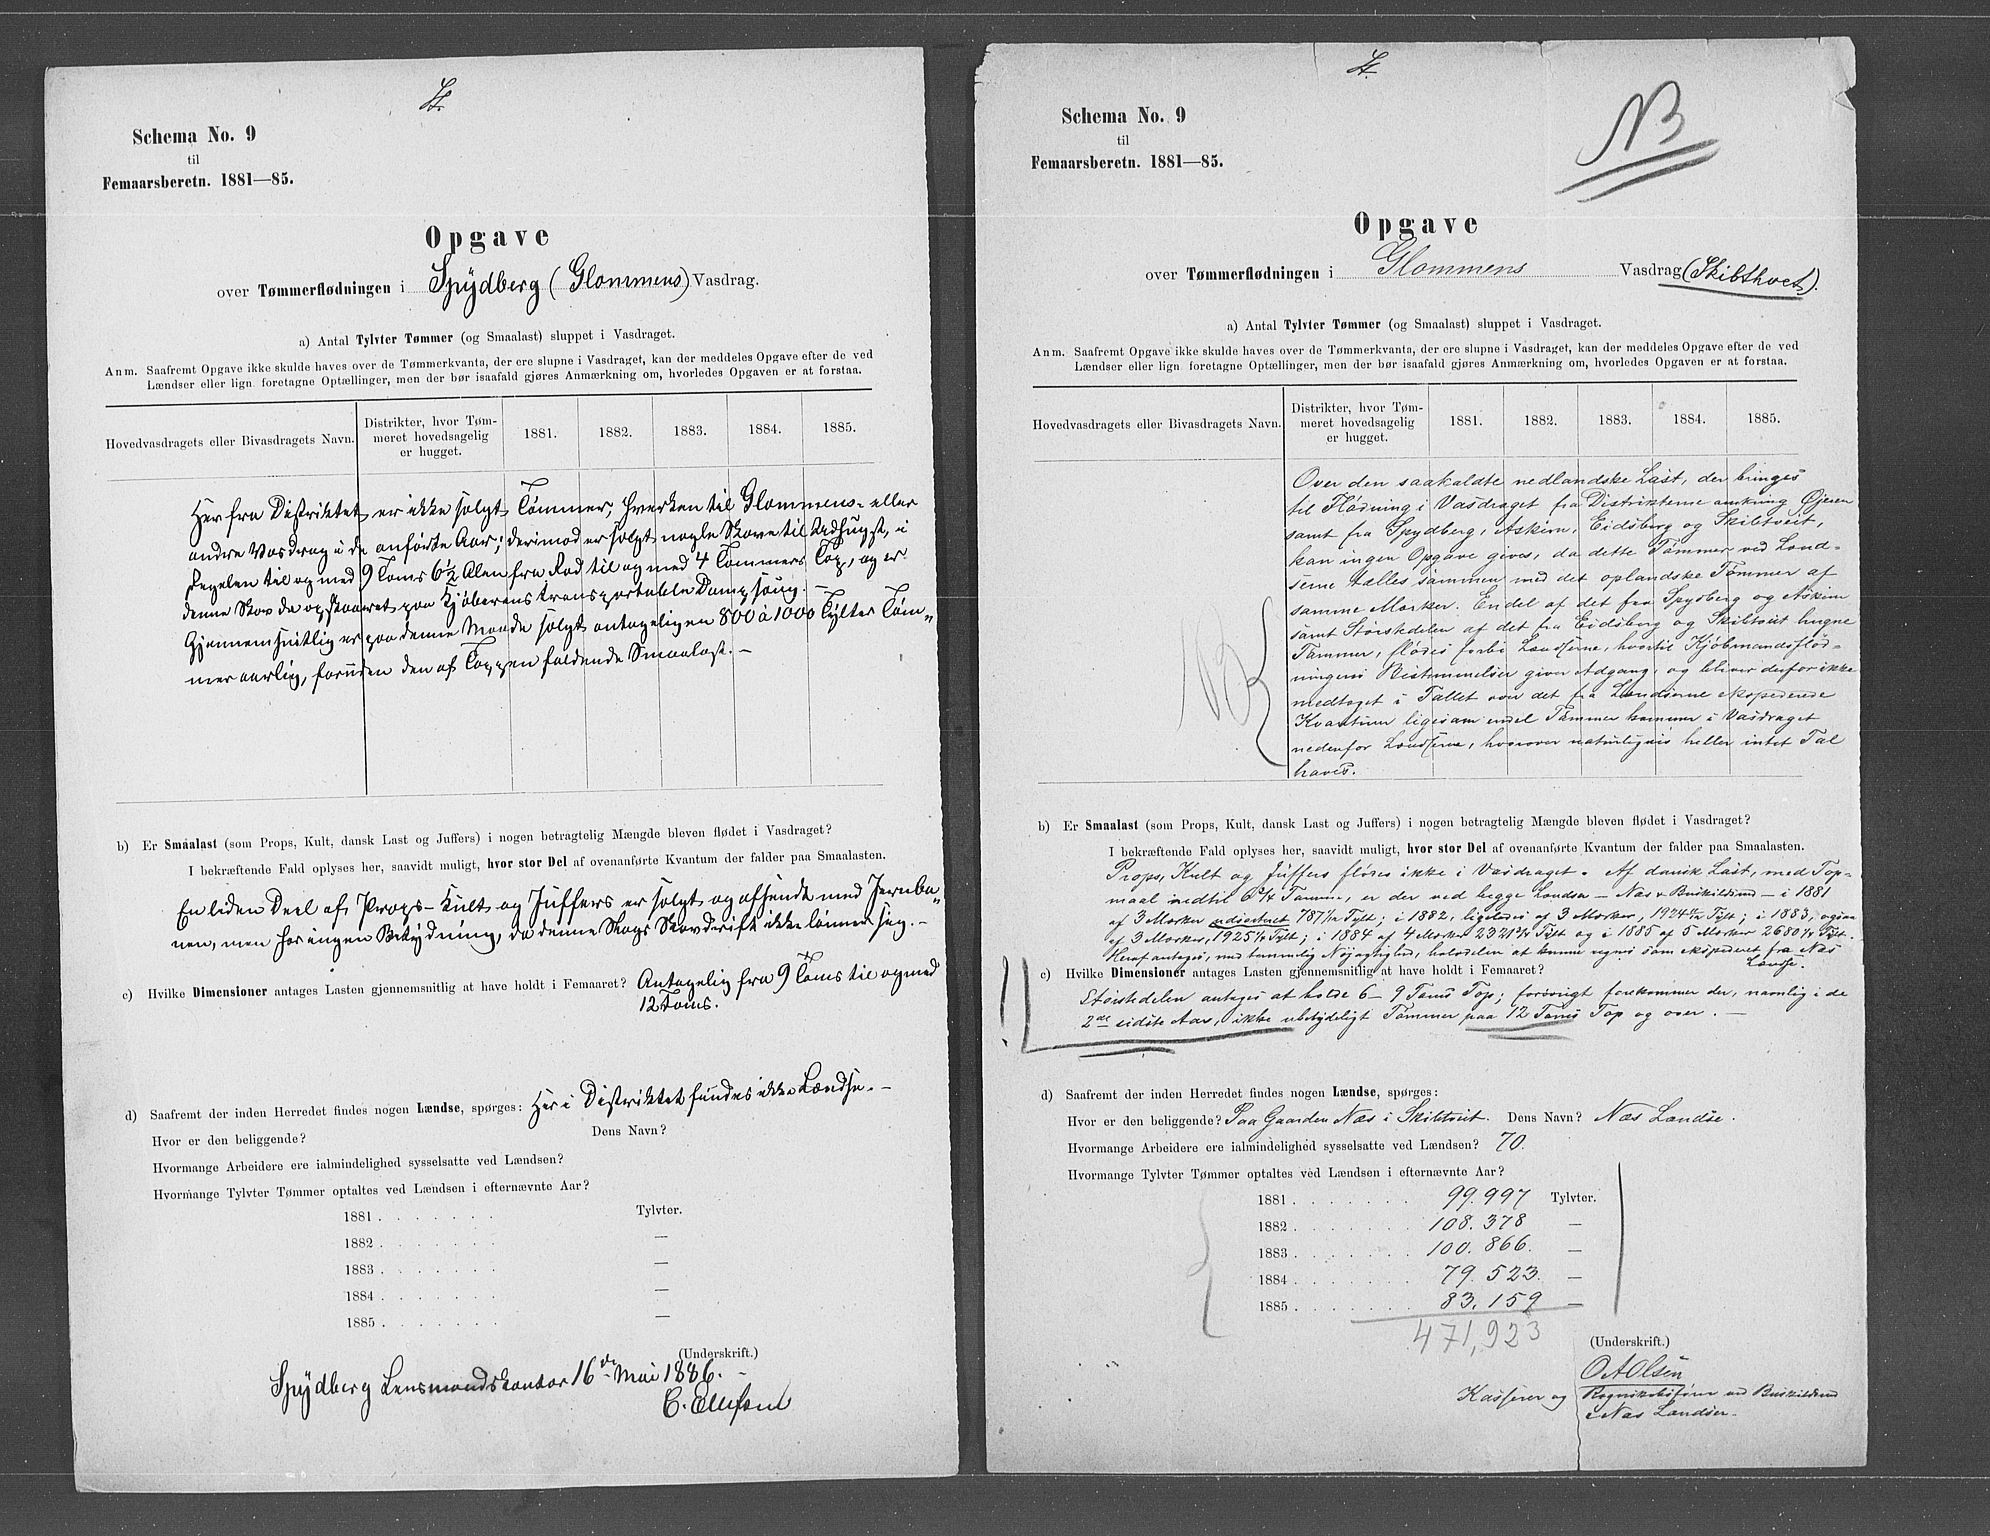 Schema No. 9
til
Femaarsberetn. 1881—85.
Opgave
over Tømmerflødningen i Spydberg (Glommens) Vasdrag.
a) Antal Tylvter Tømmer (og Smaalast) sluppet i Vasdraget.
Anm. Saafremt Opgave ikke skulde haves over de Tømmerkvanta, der ere slupne i Vasdraget, kan der meddeles Opgave efter de ved
Lændser eller lign. foretagne Optællinger, men der bør isaafald gjøres Anmærkning om, hvorledes Opgaven er at forstaa.
Hovedvasdragets eller Bivasdragets Navn.
Distrikter, hvor Tøm-
meret hovedsagelig
er hugget.
1881. 1882. 1883. 1884. 1885.
Her fra Distriktet er ikke solgt Tømmer, hverken til Glommens- eller
andre Vasdrag i de anførte Aar; derimod er solgt nogle Skove til Udhugst, i
Regelen til og med 9 Toms 6½ Alen fra Rod til og med 4 Tommers Top, og er
denne Skov da opskaaret paa Kjøberens transportable Dampsaug.
Gjennemsnitlig er paa denne Maade solgt antageligen 800 à 1000 Tylter Tøm-
mer aarlig, foruden den af Toppen faldende Smaalast. —
b) Er Smaalast (som Props, Kult, dansk Last og Juffers) i nogen betragtelig Mængde bleven flødet i Vasdraget?
I bekræftende Fald oplyses her, saavidt muligt, hvor stor Del af ovenanførte Kvantum der falder paa Smaalasten.
En liden Deel af Props- Kult og Juffers er solgt og afsendt med Jernba-
nen, men har ingen Betydning, da denne Slags Skovdrift ikke lønner sig. —
c) Hvilke Dimensioner antages Lasten gjennemsnitlig at have holdt i Femaaret? Antagelig fra 9 Toms til og med
12 Toms.
d) Saafremt der inden Herredet findes nogen Lændse, spørges: Her i Distriktet findes ikke Lændse. —
Hvor er den beliggende? Dens Navn?
Hvormange Arbeidere ere ialmindelighed sysselsatte ved Lændsen?
Hvormange Tylvter Tømmer optaltes ved Lændsen i efternævnte Aar?
1881 . . . . . . . Tylvter.
1882 . . . . . . . —
1883 . . . . . . . —
1884 . . . . . . . —
1885 . . . . . . . —
(Underskrift.)
Spydberg Lensmandskontor 16de Mai 1886. —
C. Ellefsen
Schema No. 9
til
Femaarsberetn. 1881—85.
NB
Opgave
over Tømmerflødningen i Glommens Vasdrag (Skibthvet).
a) Antal Tylvter Tømmer (og Smaalast) sluppet i Vasdraget.
Anm. Saafremt Opgave ikke skulde haves over de Tømmerkvanta, der ere slupne i Vasdraget, kan der meddeles Opgave efter de ved
Lændser eller lign. foretagne Optællinger, men der bør isaafald gjøres Anmærkning om, hvorledes Opgaven er at forstaa.
Hovedvasdragets eller Bivasdragets Navn.
Distrikter, hvor Tøm-
meret hovedsagelig
er hugget.
1881. 1882. 1883. 1884. 1885.
Over den saakaldte nedlandske Last, der bringes
til Flødning i Vasdraget fra Distrikterne omkring Øjeren
samt fra Spydberg, Askim, Eidsberg og Skiltveit,
kan ingen Opgave gives, da dette Tømmer ved Lænd-
serne tælles sammen med det oplandske Tømmer af
samme Mærker. Endel af det fra Spydberg og Askim
samt Størstedelen af det fra Eidsberg og Skiltveit hugne
Tømmer, flødes forbi Lændserne, hvortil Kjøbmandsflød-
ningens Bestemmelser giver Adgang, og bliver derfor ikke
medtaget i Tallet over det fra Lændserne expederede
Kvantum ligesom endel Tømmer kommer i Vasdraget
nedenfor Lændserne, hvorover naturligvis heller intet Tal
haves.
NB
b) Er Smaalast (som Props, Kult, dansk Last og Juffers) i nogen betragtelig Mængde bleven flødet i Vasdraget?
I bekræftende Fald oplyses her, saavidt muligt, hvor stor Del af ovenanførte Kvantum der falder paa Smaalasten.
Props, Kult og Juffers flødes ikke i Vasdraget. Af dansk Last, med Top-
maal nedtil Tomme, er der ved begge Lændser — Næs & Buskildsund — i 1881
af 3 Mærker udsorteret Tylt; i 1882, ligeledes af 3 Mærker, Tylt; i 1883, ogsaa
af 3 Mærker, Tylt; i 1884 af 4 Mærker Tylt og i 1885 af 5 Mærker Tylt.
Heraf antages, med temmelig Nøjagtighed, halvdelen at kunne regnes som expederet fra Næs
Lændse.
c) Hvilke Dimensioner antages Lasten gjennemsnitlig at have holdt i Femaaret?
Størstedelen antages at holde 6 – 9 Toms Top; forøvrigt forekommer der, navnlig i de
2de sidste Aar, ikke ubetydeligt Tømmer paa 12 Toms Top og over. —
d) Saafremt der inden Herredet findes nogen Lændse, spørges:
Hvor er den beliggende? Paa Gaarden Næs i Skiltveit. Dens Navn? Næs Lændse.
Hvormange Arbeidere ere ialmindelighed sysselsatte ved Lændsen? 70.
Hvormange Tylvter Tømmer optaltes ved Lændsen i efternævnte Aar?
1881 . . . . . . . 99.997 Tylvter.
1882 . . . . . . . 108.378 —
1883 . . . . . . . 100.866. —
1884 . . . . . . . 79.523. —
1885 . . . . . . . 83.159 —
471,923
(Underskrift.)
O A Olsen
Kasserer og Regnskabsfører ved Buskildsund
& Næs Lændser.